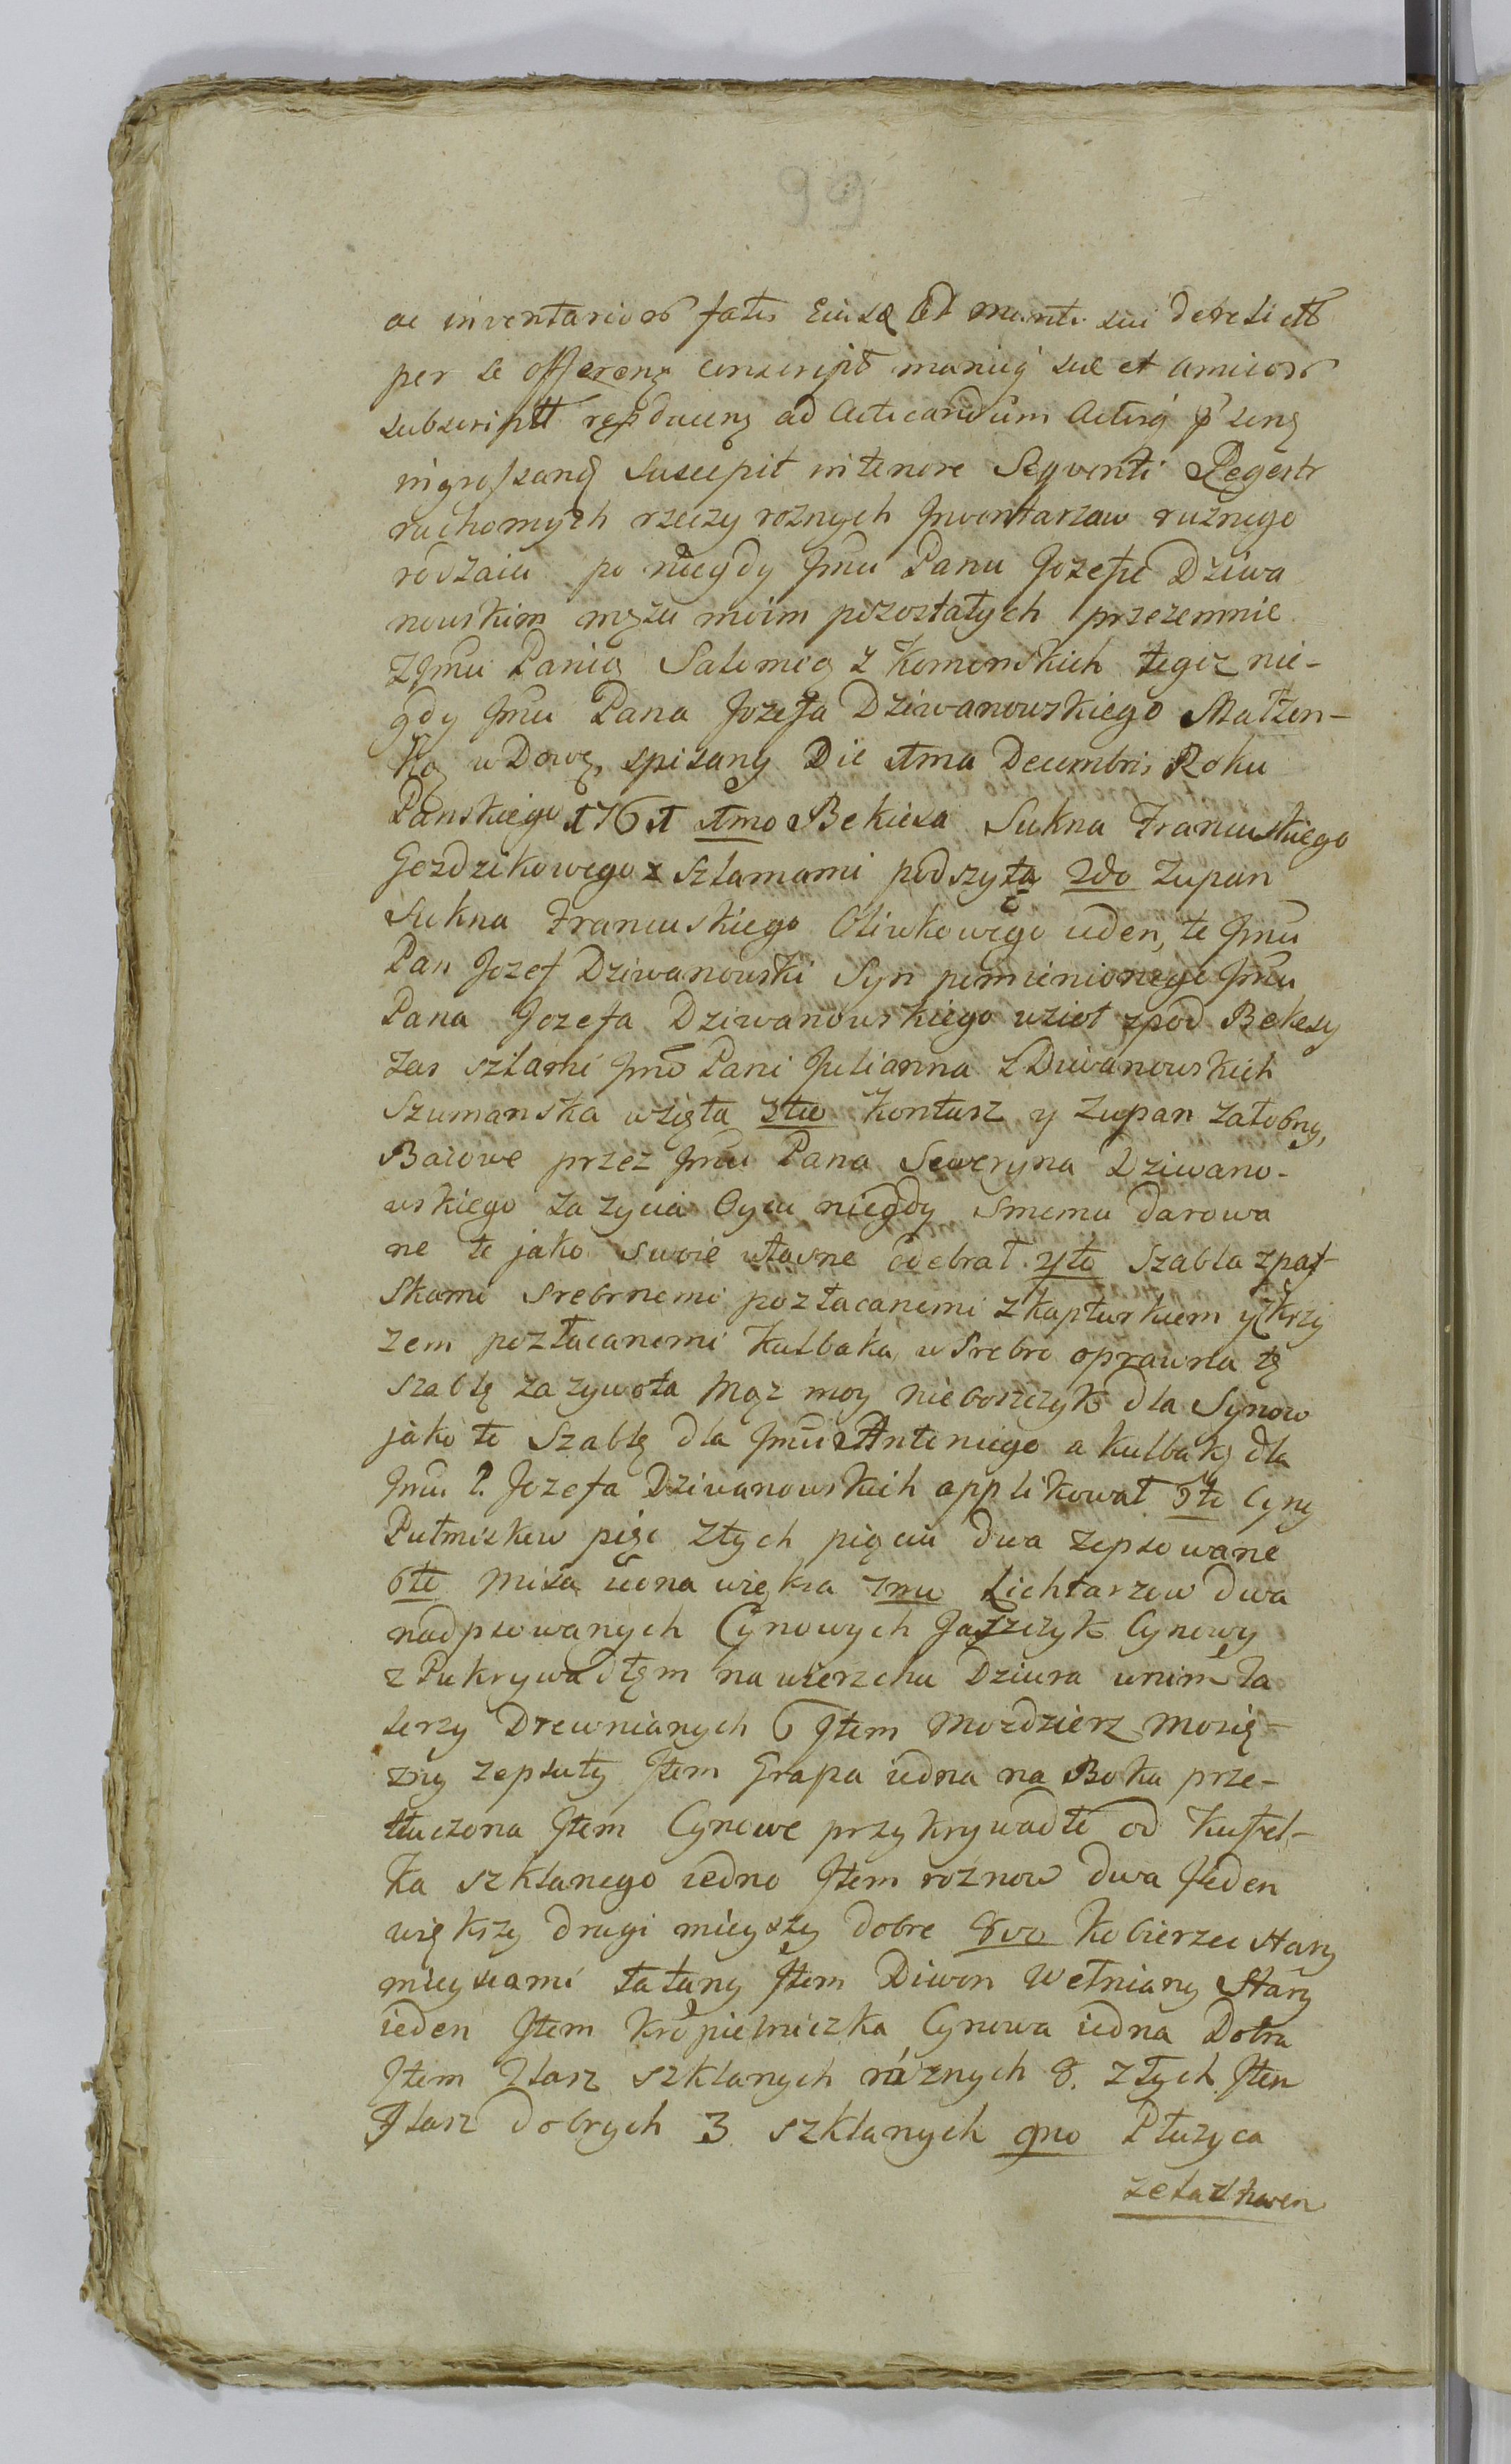 99
ac inventarior fatis Eiusd et manti sui derelictt
per se offerens conscript manuq sua et amicor
subscriptt reproducens ad acticandum actisq psens
ingrossand suscepit in tenore Seqventi Regestr
ruchomych rzeczy roznych Jnwentarzaw ruznego
rodzaiu po niegdy Jmu Panu Jozefie Dziwa
nowskim mężu moim pozostałych przezemnie
Jmu Panią Salomeą z Komorskich tegoz nie-
gdy Jmu Pana Jozefa Dziwanowskiego Małzon-
ką wDowę, spisany Die 1ma Decembris Roku
Panskiego 1761 1mo Bekiesa Sukna Francuskiego
Gozdzikowego z szlamami podszyta 2do Zupan
Sukna Francuskiego Oliwkowego ieden, te Jmu
Pan Jozef Dziwanowski Syn pomienionego Jmu
Pana Jozefa Dziwanowskiego wzioł zpod Bekesy
zas szlami Jmo Pani Julianna z Dziwanowskich
Szumanska wzięta 3tio Kontusz y Zupan załobny,
Baiowe przez Jmu Pana Seweryna Dziwano-
wskiego za zycia Oycu niegdy smemu darowa
ne te jako swoie własne odebrał 4to Szabla zpas-
skami srebrnemi pozłacanemi z kapturkiem y krzy
zem pozłacanemi Kulbaka w srebro oprawna tę
szablę za zywota Mąz moy nieboszczyk dla Synow
jako to Szablę dla Jmu Antoniego a kulbakę dla
Jmu P. Jozefa Dziwanowskich applikował 5to Cyny
Pułmiskow pięc złych pięciu dwa zepsowane
6to Misa iedna większa 7mo Lichtarzow dwa
nadpsowanych Cynowych Jaszczyk Cynowy
z Pukrywadłęm na wierzchu Dziura wnim Ta
lerzy Drewnianych 6 Jtem Mozdzierz Mosię-
zny zepsuty Jtem Grapa iedna na Boku prze-
tłuczona Jtem Cynowe przykrywadło od Kufel-
ka szklanego iedno Jtem roznow dwa Jeden
większy drugi mieyszy dobre 8vo Kobierzec stary
mieyscami łatany Jtem Diwon Wełniany Stary
ieden Jtem Kropielniczka Cynowa iedna Dobra
Jtem Flasz szklanych róznych 8. złych Jten
Flasz dobrych 3 szklanych 9no Płuzyca